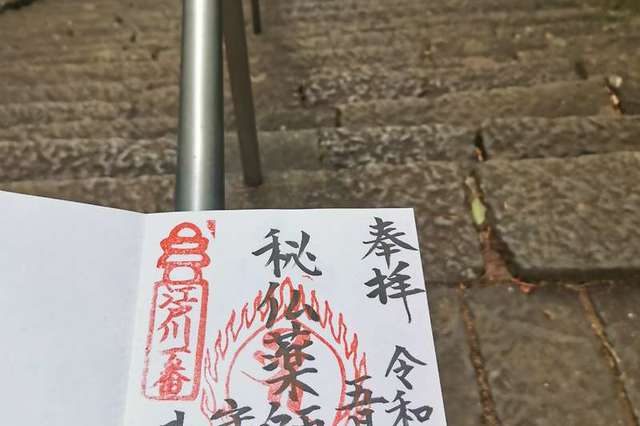 奉拝
令和
五
秘仏薬師
江戸川一番